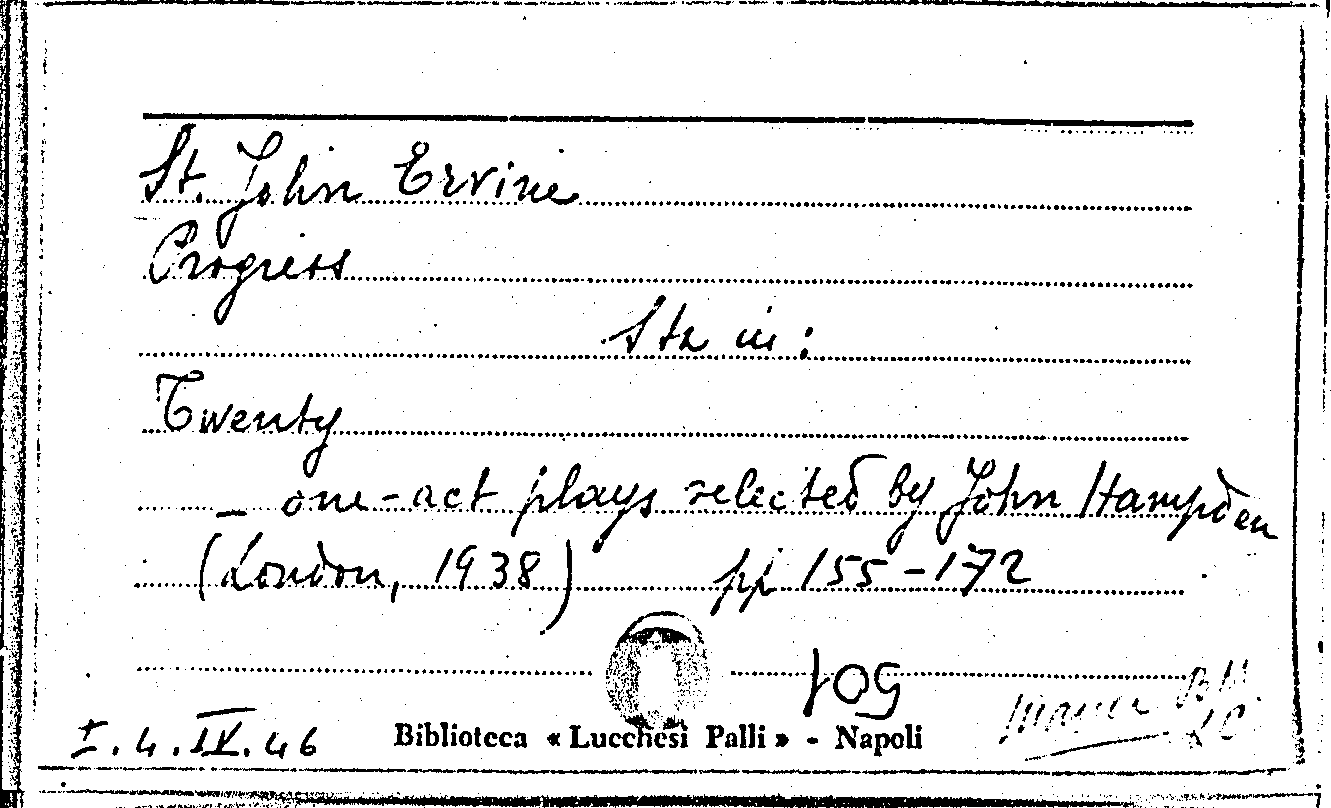 St. John Ervine
Progress
Sta in:
Twenty
— one-act plays selected by John Hampden
(London, 1938) pp 155-172
I.4.IV.46
Biblioteca « Lucchesi Palli » - Napoli
manca BM
LC